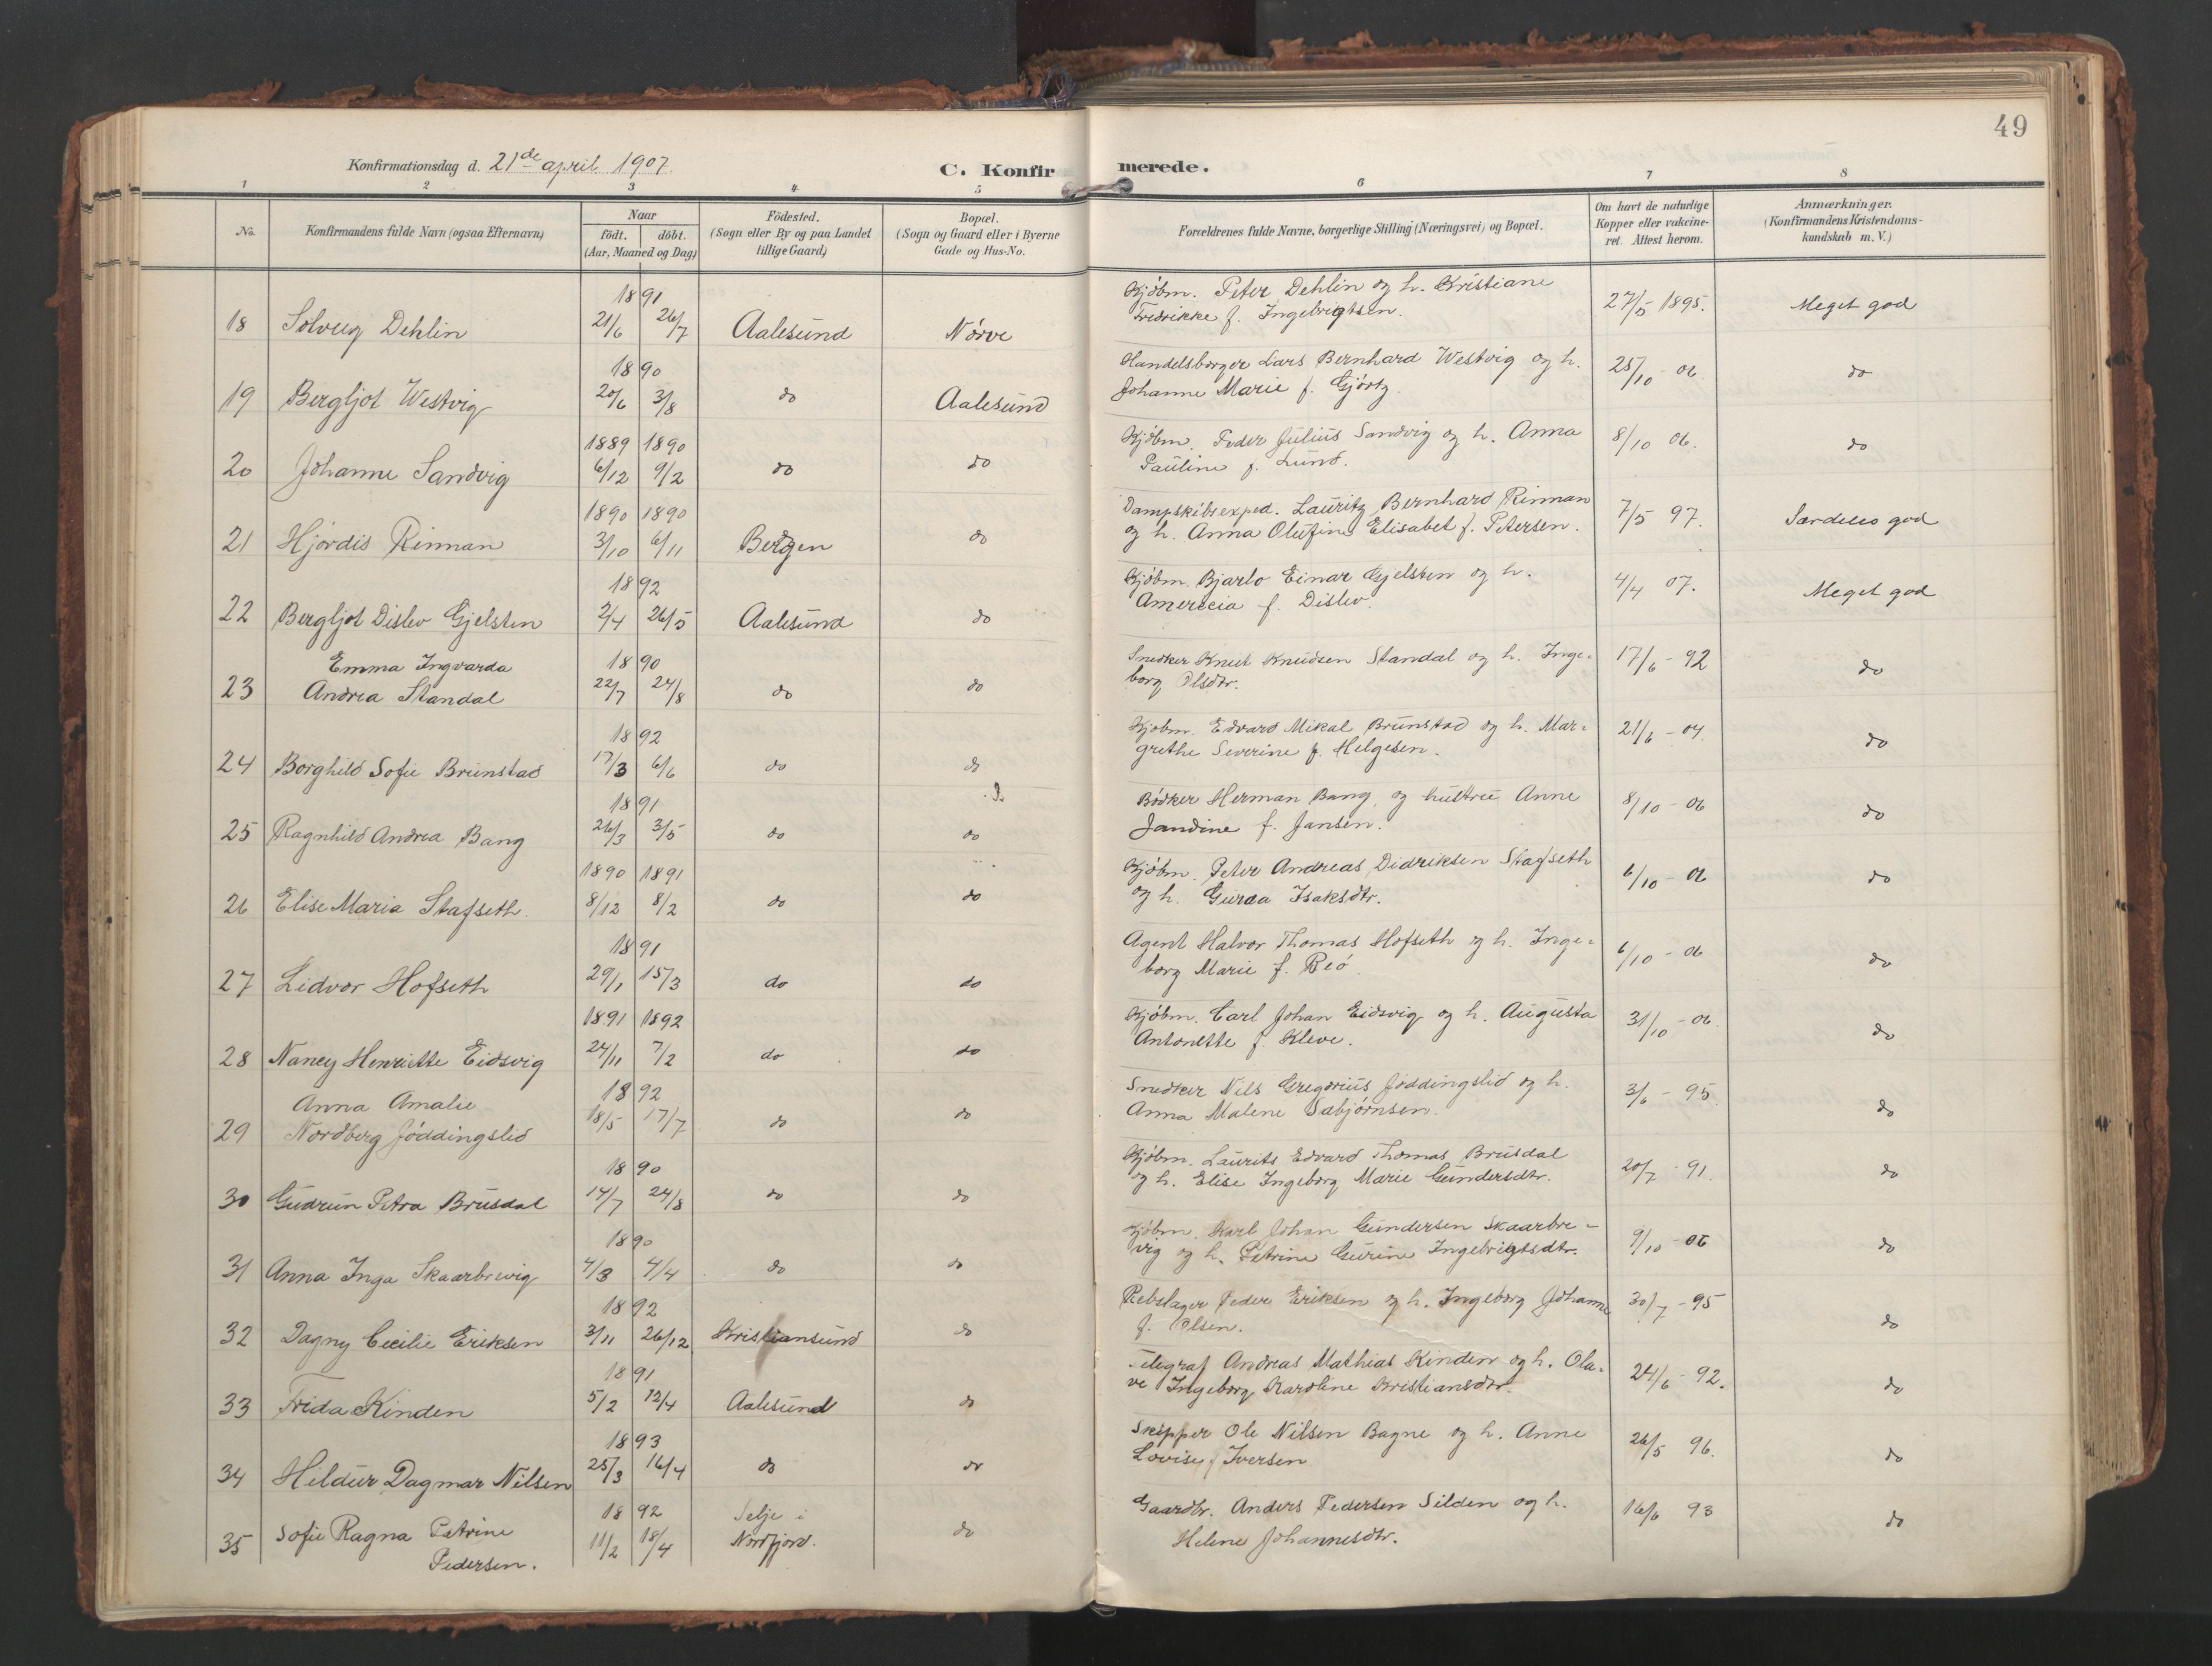 49
Konfirmationsdag d. 21de april 1907.
C. Konfirmerede.
1 2 3 4 5 6 7 8
No.
Konfirmandens fulde Navn (ogsaa Efternavn)
Naar
födt. döbt.
(Aar, Maaned og Dag)
Födested.
(Sogn eller By og paa Landet
tillige Gaard)
Bopæl.
(Sogn og Gaard eller i Byerne
Gade og Hus-No.
Forældrenes fulde Navne, borgerlige Stilling (Næringsvei) og Bopæl.
Om havt de naturlige
Kopper eller vakcine-
ret. Attest herom.
Anmærkninger.
(Konfirmandens Kristendoms-
kundskab m. V.)
1891
18 Solveig Dehlin 21/6 26/7 Aalesund Nørve
Kjøbm. Peter Dehlin og h. Kristiane
Fredrikke f. Ingebrigtsen.
27/5 1895. Meget god
1890
19 Bergljot Westvig 20/6 3/8 do Aalesund
Handelsborger Lars Bernhard Westvig og h.
Johanne Marie f. Gjørtz
25/10 - 06 do
1889 1890
20 Johanne Sandvig 6/12 9/2 do do
Kjøbm. Peder Julius Sandvig og h. Anna
Pauline f. Lund.
8/10 06. do
1890 1890
21 Hjørdis Rinnan 3/10 6/11 Bergen do
Dampskibsexped. Lauritz Bernhard Rinnan
og h. Anna Olufine Elisabet f. Petersen.
7/5 97. Særdeles god
1892
22 Bergljot Dislev Gjelsten 2/4 26/5 Aalesund do
Kjøbm. Bjarlo Einar Gjelsten og h.
Amerecia f. Dislev.
4/4 07. Meget god
Emma Ingvarda 1890
23 Andrea Standal 22/7 24/8 do do
Snedker Knut Knudsen Standal og h. Inge-
borg Olsdtr.
17/6 - 92 do
1892
24 Borghild Sofie Brunstad 17/3 6/6 do do
Kjøbm. Edvard Mikal Brunstad og h. Mar-
grethe Severine f. Helgesen.
21/6 - 04. do
1891
25 Ragnhild Andrea Bang 26/3 3/5 do do
Bødker Herman Bang, og hustru Anne
Jandine f. Jansen.
8/10 - 06 do
1890 1891
26 Elise Maria Stafseth. 8/12 8/2 do do
Kjøbm. Peter Andreas Didriksen Stafseth
og h. Guraa Isaksdtr.
6/10 - 06 do
1891
27 Lidvor Hofseth 29/1 15/3 do do
Agent Halvor Thomas Hofseth og h. Inge-
borg Marie f. Reø
6/10 - 06 do
1891 1892
28 Nancy Henriette Eidsvig 24/11 7/2 do do
Kjøbm. Carl Johan Eidsvig og h. Augusta
Antonette f. Kleve.
31/10 - 06. do
Anna Amalie 1892
29 Nordberg Jøddingslid 18/5 17/7 do do
Snedker Nils Gregorius Jøddingslid og h.
Anna Malene Sæbjørnsen.
3/6 - 95 do
1890
30 Gudrun Petra Brusdal 14/7 24/8 do do
Kjøbm. Laurits Edvard Thomas Brusdal
og h. Elise Ingeborg Marie Gundersdtr.
20/7 - 91. do
1890
31 Anna Inga Skaarbrevig 4/3 4/4 do do
Kjøbm. Karl Johan Gundersen Skaarbre-
vig og h. Petrine Gurine Ingebrigtsdtr.
9/10 - 06 do
1892
32 Dagny Cecilie Eriksen 3/11 26/12 Kristiansund do
Rebslager Peder Eriksen og h. Ingeborg Johanne
f. Olsen.
30/7 - 95 do
1891
33 Frida Kinden 5/2 12/4 Aalesund do
Telegraf Andreas Mathias Kinden og h. Ola-
ve Ingeborg Karoline Kristiansdtr.
24/6 - 92. do
1893
34 Heldur Dagmar Nilsen 25/3 16/4 do do
Skipper Ole Nilsen Bagne og h. Anne
Lovise f. Iversen
26/5 96. do
1892 Selje i
35 Sofie Ragna Petrine 11/2 18/4 Nordfjord. do
Pedersen.
Gaardbr. Anders Pedersen Silden og h.
Helene Johannesdtr.
16/6 93 do